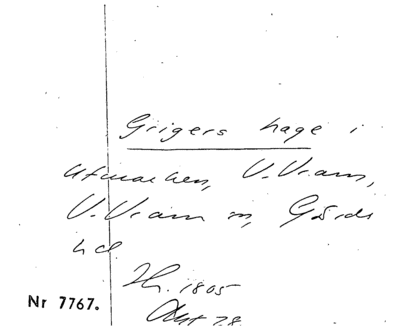 Grigers hage i
utmarken, V.Vram,
V.Vram sn, Gärds
hd.
1805
Nr 7767.